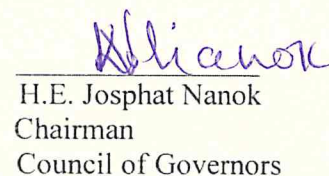 H.E. Josphat Nanok
Chairman
Council of Governors